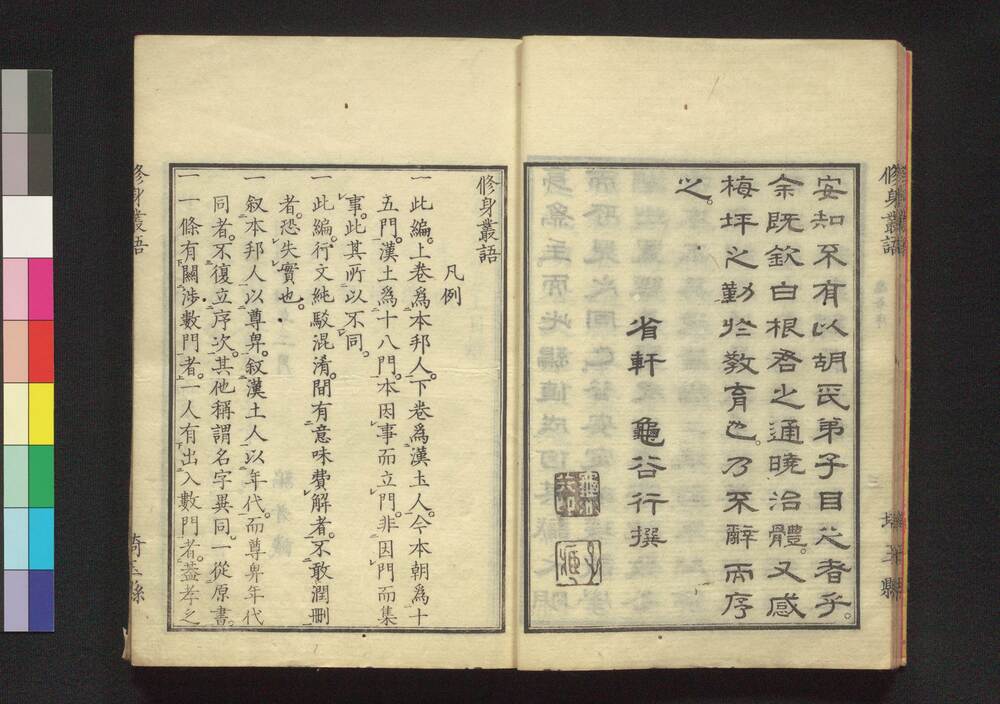 安知不有以胡氏弟子目之者乎。
余既欽白根君之通曉治體。又感
梅坪之勤於敎育也。乃不辭而序
之。
省軒 龜谷行撰
修身叢語
埼玉縣
修身叢語
凡例
一 此編。上卷爲本邦人。下卷爲漢土人。今本朝爲十
五門。漢土爲十八門。本因事而立門。非因門而集
事。此其所以不同。
一 此編。行文純駁混淆。間有意味費解者。不敢潤刪
者。恐失實也。
一 叙本邦人以尊卑。叙漢土人以年代。而尊卑年代
同者。不復立序次。其他稱謂名字異同。一從原書。
一 一條有關涉數門者。一人有出入數門者。葢孝之
修身叢語
埼玉縣